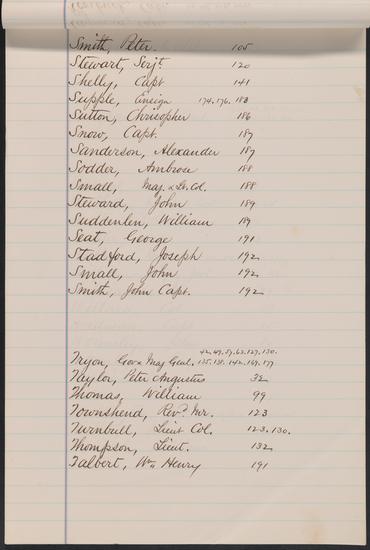 Smith, Peter. 105
Stewart, Serjt. 120
Shelly, Capt 141
Supple, Ensign 174. 176. 183
Sutton, Chrisopher 186
Snow, Capt. 187
Sanderson, Alexander 187
Sodder, Ambrose 188
Small, Maj. & Lt. Col. 188
Steward, John 189
Suddenlen, William 189
Seat, George 191
Stadford, Joseph 192
Small, John 192
Smith, John Capt. 192
42. 49. 57. 63. 127. 130.
Tryon, Gov & Maj Genl. 135. 138. 142. 169. 177
Taylor, Peter Angustus 32
Thomas, William 99
Townshend, Revd. Mr. 123
Turnbull, Lieut Col. 123. 130.
Thompson, Lieut. 132
Talbert, Wm Henry 191